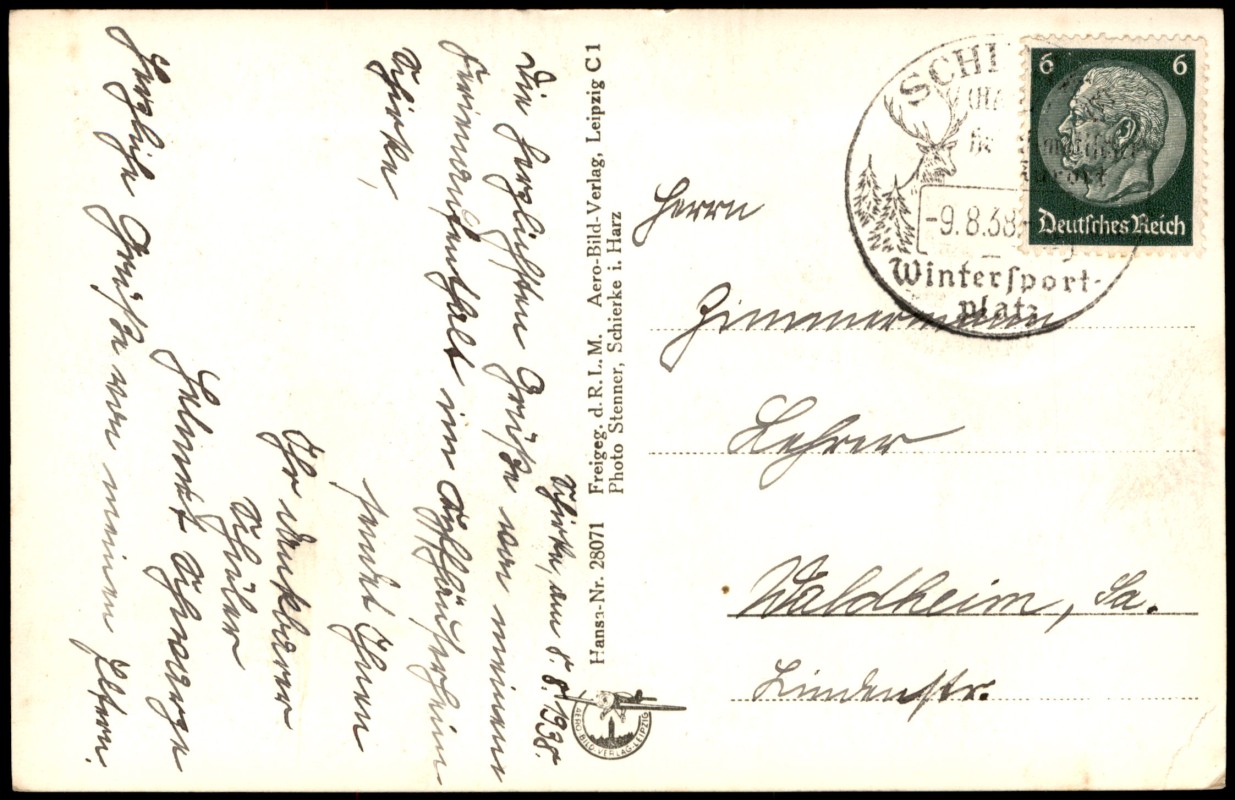 Schirke, am 8.8.1938.
Die herzlichsten Grüße von meinem
Ferienaufenthalt im Kyffhäuserheim
Schirke,
sendet Ihnen
Ihr dankbarer
Schüler
Helmut Schwarze
Herzliche Grüße von meinen Eltern.
Hansa-Nr. 28071 Freigeg. d. R. L. M. Aero-Bild-Verlag, Leipzig C 1
Photo Stenner, Schierke i. Harz
AERO-BILD-VERLAG-LEIPZIG
-9.8.38
Wintersport-
platz
6 6
Deutsches Reich
Herrn
Zimmermann
Lehrer
Waldheim, Sa.
Lindenstr.